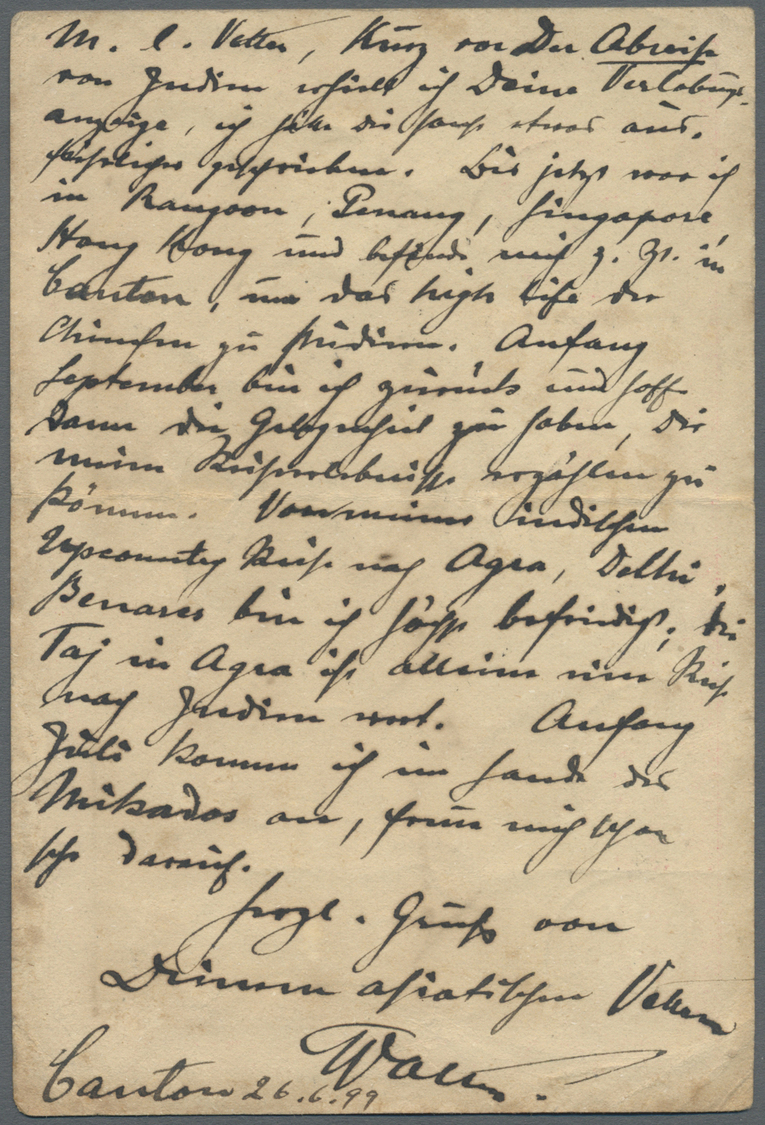 M. l. Vetter, Kurz vor der Abreise
von Indien erhielt ich Deine Verlobungs-
anzeige, ich hätte Dir sonst etwas aus-
führlicher geschrieben. Bis jetzt war ich
in Rangoon, Penang, Singapore,
Hong Kong und befinde mich z. Zt. in
Canton, um das high life der
Chinesen zu studieren. Anfang
September bin ich zurück und hoffe
dann die Gelegenheit zu haben, Dir
meine Reiseerlebnisse erzählen zu
können. Von meiner indischen
Upcountry Reise nach Agra, Delhi,
Benares bin ich höchst befriedigt, die
Taj in Agra ist alleine eine Reise
nach Indien wert. Anfang
Juli komme ich im Lande des
Mikados an, freue mich schon
sehr darauf.
Herzl. Gruß von
Deinem asiatischen Vettern
Canton 26.6.99